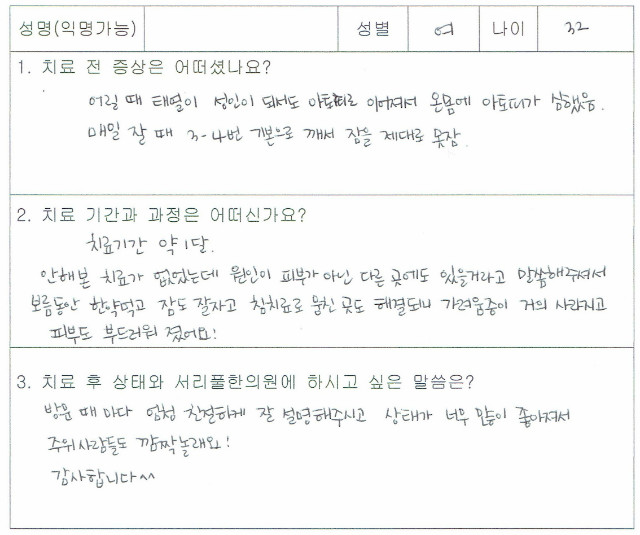 성명(익명가능) 성별 여 나이 32
1. 치료 전 증상은 어떠셨나요?
어릴 때 태열이 성인이 되서도 아토피로 이어져서 온몸에 아토피가 심했음.
매일 잘 때 3-4번 기본으로 깨서 잠을 제대로 못잠.
2. 치료 기간과 과정은 어떠신가요?
치료기간 약 1달.
안해본 치료가 없었는데 원인이 피부가 아닌 다른 곳에도 있을거라고 말씀해주셔서
보름동안 한약먹고 잠도 잘자고 침치료로 뭉친 곳도 해결되니 가려움증이 거의 사라지고
피부도 부드러워 졌어요!
3. 치료 후 상태와 서리풀한의원에 하시고 싶은 말씀은?
방문 때 마다 엄청 친절하게 잘 설명해주시고 상태가 너무 많이 좋아져서
주위사람들도 깜짝놀래요!
감사합니다^^